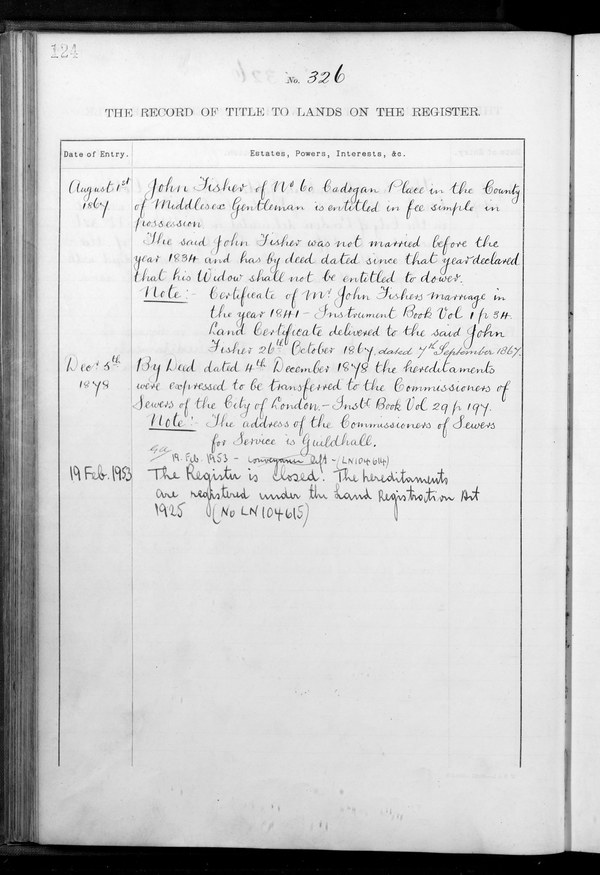 124
No. 326
THE RECORD OF TITLE TO LANDS ON THE REGISTER
Date of Entry. Estates, Powers, Interests, &c.
August 1st John Fisher of No. 60 Cadogan Place in the County
1867 of Middlesex Gentleman is entitled in fee simple in
possession.
The said John Fisher was not married before the
year 1834 and has by deed dated since that year declared
that his Widow shall not be entitled to dower.
Note:- Certificate of Mr. John Fishers marriage in
the year 1841 - Instrument Book Vol 1 p 34.
Land Certificate delivered to the said John
Fisher 26th October 1867, dated 7th September 1867.
Decr. 5th By Deed dated 4th December 1878 the hereditaments
1878 were expressed to be transferred to the Commissioners of
Sewers of the City of London. - Instt. Book Vol 29 p 197.
Note:- The address of the Commissioners of Sewers
for Service is Guildhall.
19. Feb. 1953 - Conveyance left - (LN104614)
19 Feb. 1953 The Register is closed. The hereditaments
are registered under the Land Registration Act
1925 (No LN 104615)